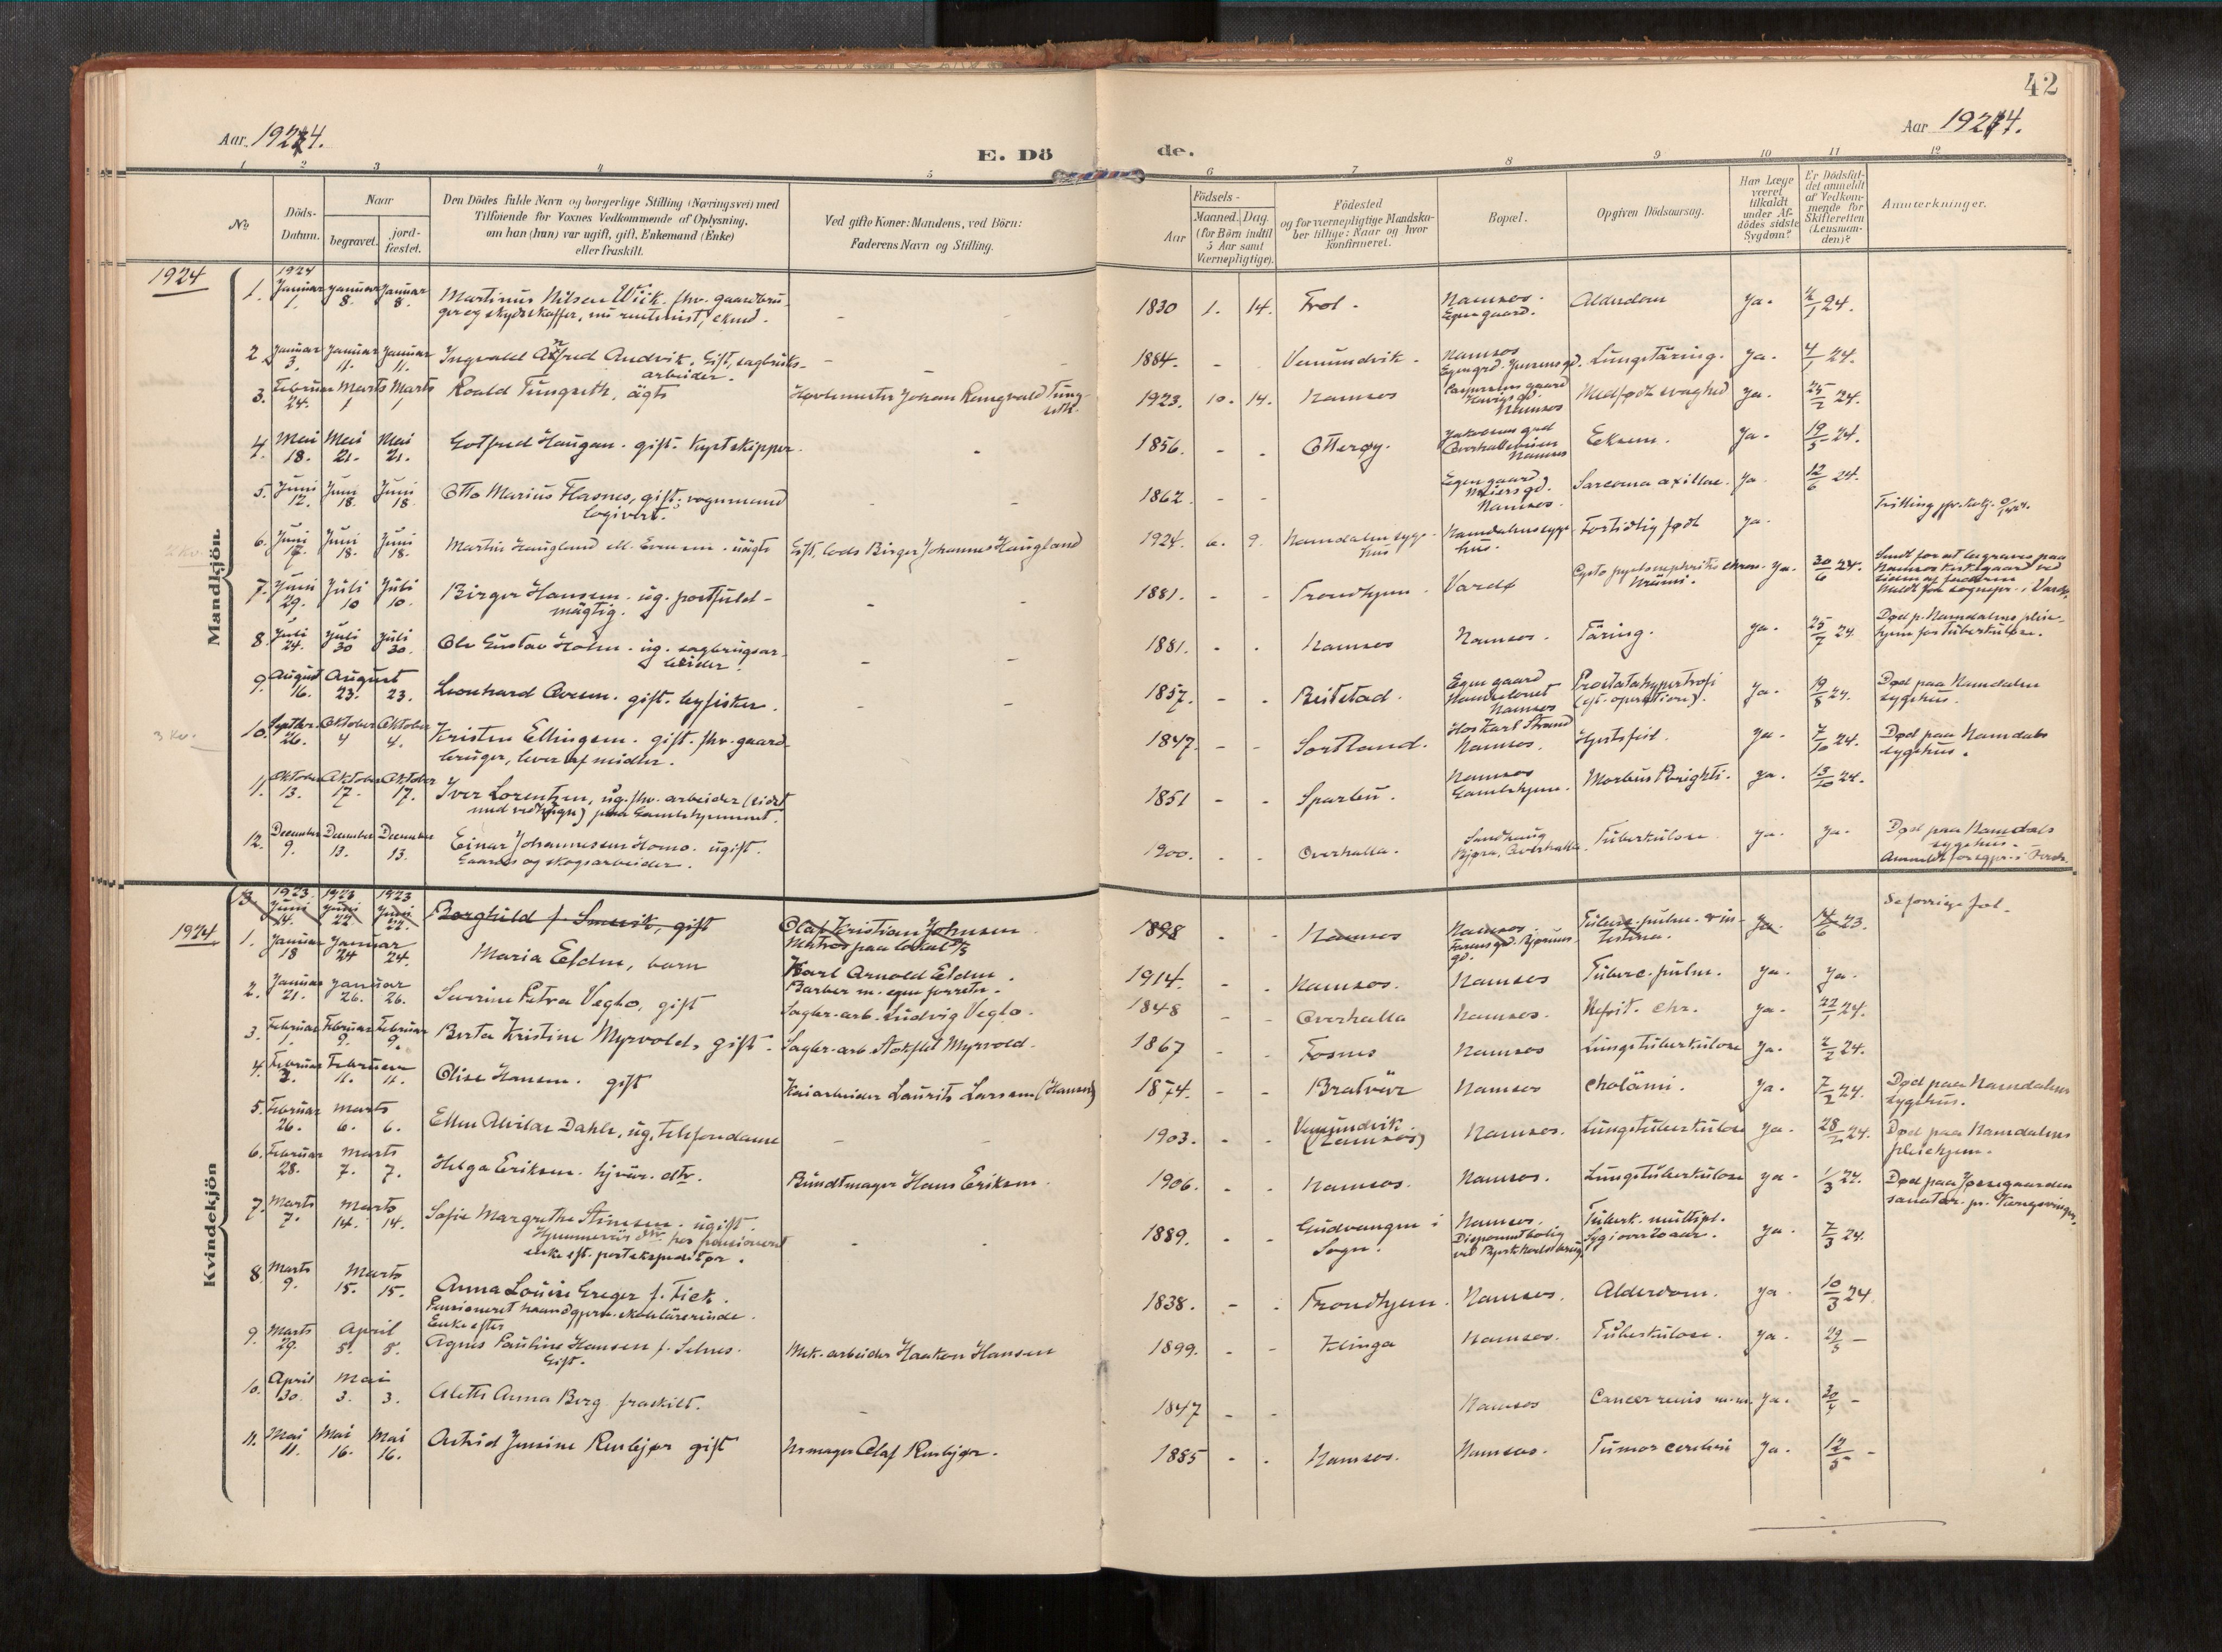 42
Aar 1924.
Aar 1924.
E. Dö
de.
1 2 3 4 5
6 7 8 9 10 11 12
No
Döds-
Datum.
Naar
begravet.
jord-
fæstet.
Den Dödes fulde Navn og borgerlige Stilling (Næringsvei) med
Tilföiende for Voxnes Vedkommende af Oplysning,
om han (hun) var ugift, gift, Enkemand (Enke)
eller fraskilt.
Ved gifte Koner: Mandens, ved Börn:
Faderens Navn og Stilling.
Födsels-
Aar
Maaned.
Dag.
(for Börn indtil
5 Aar samt
Værnepligtige).
Födested
og for værnepligtige Mandska-
ber tillige: Naar og hvor
konfirmeret.
Bopæl.
Opgiven Dödsaarsag.
Har Læge
været
tilkaldt
under Af-
dödes sidste
Sygdom?
Er Dödsfal-
det anmeldt
af Vedkom-
mende for
Skifteretten
(Lensman-
den)?
Anmerkninger.
Mandkjön.
1924
1924
1. Januar 1. Januar 8. Januar 8. Martinus Nilsen Wiik. fhv. gaardbru-
ger og skydsskaffer, nu rentenist, ekmd. -
1830 1. 14. Frol. Namsos.
Egen gaard. Alderdom ja. 2/1 24.
2. Januar 3. Januar 11. Januar 11. Ingvald Alfred Andvik. Gift, sagbruks-
arbeider. -
1884. - Vemundvik. Namsos Lungetäring. ja. 4/1 24.
3. Februar 24. Marts 1 Marts 1 Roald Tungseth, ägte
1923. 10. 14. Namsos Namsos Medfødt svaghed ja. 25/2 24.
4. Mai 18. Mai 21. Mai 21. Gotfred Haugan. gift. Kystskipper. -
1856. - - Otterøy. Namsos Eksem. Ja. 19/5 24.
5. Juni 12. Juni 18. Juni 18. Otto Marius Flasnes, gift, vognmand
logivert. - -
1862. - - Egen gaard
Namsos. Sarcoma axillae. Ja. 12/6 24.
6. Juni 17. Juni 18. Juni 18. Martin Haugland uägte Gift, lods Birger Johannes Haugland
1924. 6. 9. Namdalens syge-
hus Namdalens syge-
hus. Fortidlig født ja.
7. Juni 29. Juli 10 Juli 10. Birger Hansen. ug. postfuld-
mägtig. - -
1881. - - Trondhjem. Vardø Urämi. ja. 30/6 24. Sendt for at begraves paa
Namsos kirkegaard ved
8. Juli 24. Juli 30 Juli 30. Ole Gustav Holm. ug. sagbrugsar-
beider. - -
1881. - - Namsos Namsos. Täring. ja. 25/7 24. Død p. Namdalens pleie-
hjem for Tuberkuløse.
9. August 16. August 23. 23. Leonhard Aveem. gift. byfisker. - -
1857. - - Beitstad. Egen gaard
Namsos Prostatahypertrofi
(eft. operation). ja. 19/8 24. Død paa Namdalens
sygehus.
10. Septbr. 26. Oktober 4 Oktober 4. Kristen Ellingsen. gift. fhv. gaard-
bruger, lever af midler.
1847. - - Sortland. Hos Karl Strand
Namsos. Hjertefeil. ja. 7/10 24. Død paa Namdals
sygehus.
11. Oktober 13. Oktober 17. Oktober 17. Iver Lorentzen, ug. fhv. arbeider (sidst
med vedhugn) paa Gamlehjemmet.
1851 - - Sparbu. Namsos
Gamlehjem. Morbus Brighti. ja. 13/10 24.
12. December 9. December 13. December 13. Einar Johannessen Homo. ugift.
Gaards og skogsarbeider.
1900. - - Overhalla. Overhalla. Tuberkulose ja. ja. Død paa Namdals
sygehus.
Kvindekjön
1924
13. 1923 Juni 14. 1923 Juni 22. 1923 Juni 22. Borghild f. Smevik, gift Olaf Kristian Johnsen
1898 - - Namsos Namsos ja 14/6 23. Se forrige fol.
1. Januar 18 Januar 24 24. Maria Elden, barn Karl Arnold Elden.
Barber m. egen forretn.
1914. - - Namsos. Namsos Tuberc. pulm. ja. ja.
2. Januar 21. Januar 26. 26. Serine Petra Veglo, gift Sagbr. arb. Ludvig Veglo.
1848 - - Overhalla Namsos. Nefrit. chr. ja. 22/1 24.
3. Februar 1. Februar 9. Februar 9. Berta Kristine Myrvold, gift. Sagbr. arb. Stokflet Myrvold.
1867 - - Fosnes Namsos Lungetuberkulose ja. 2/2 24.
4. Februar 2. Februar 11. 11. Olise Hansen. gift Kaiarbeider Laurits Larsen (Hansen)
1874. - - Bratvär Namsos Cholämi. ja. 7/2 24. Død paa Namdalens
sygehus.
5. Februar 26. Marts 6. 6. Ellen Alvilde Dahle, ug, telefondame - -
1903. - - Vemundvik.
(Namsos) Namsos. Lungetuberkulose ja. 28/2 24. Død paa Namdalens
pleiehjem.
6. Februar 28. Marts 7. 7. Helga Eriksen. hjvär. dtr. Bundtmager Hans Eriksen.
1906. - - Namsos. Namsos. Lungetuberkulose ja. 1/3 24. Død paa
sanator. pr. Kongsvinger.
7. Marts 7. Marts 14. 14. Sofie Margrethe Stimsen. ugift.
Hjemmevär. dtr. hos pensioneret
enke eft. postekspeditør. - -
1889. - - Gudvangen i
Sogn. Namsos. Tuberk. multipl.
Syg i over 20 aar. ja. 7/3 24.
8. Marts 9. Marts 15. 15. Anna Louise Greger f. Fick.
Pensioneret haandgjern. skolelärerinde.
Enke efter
1838. - - Trondhjem. Namsos. Alderdom. ja. 10/3 24
9. Marts 29. April 5. 5. Agnes Pauline Hansen f. Selnes.
Gift. Mek. arbeider Haakon Hansen
1899. - - Klinga Namsos. Tuberkulose. ja. 29/3 -
10. April 30. Mai 3. 3. Alette Anna Berg fraskilt. -
1847 - - Namsos Cancer renis m.m. ja. 30/4 -
11. Mai 11. Mai 16. Mai 16. Astrid Jensine Renbjør gift Urmager Olaf Renbjør.
1885 - - Namsos. Namsos. Tumor cerebri ja. 12/5 -